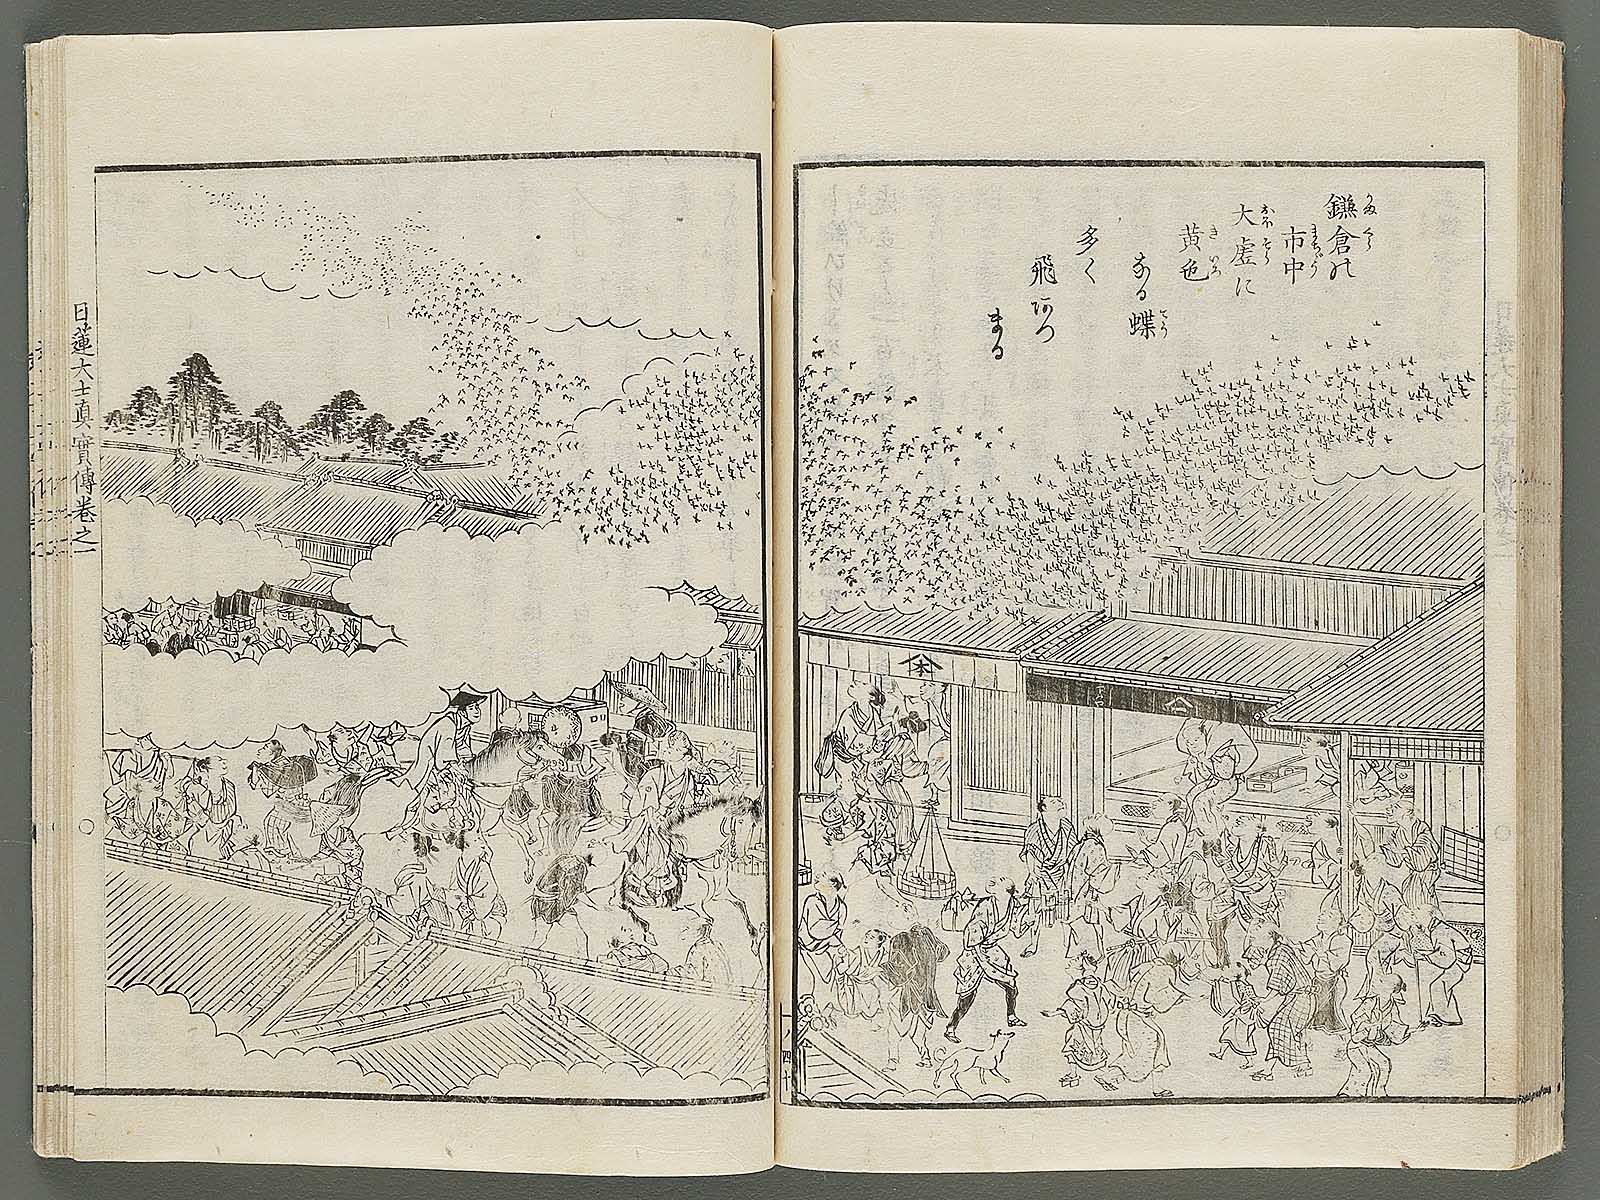 鎌倉の
市中
大虚に
黄色
なる蝶
多く
飛あつ
まる
本
四十
日蓮大士真實傳卷之一